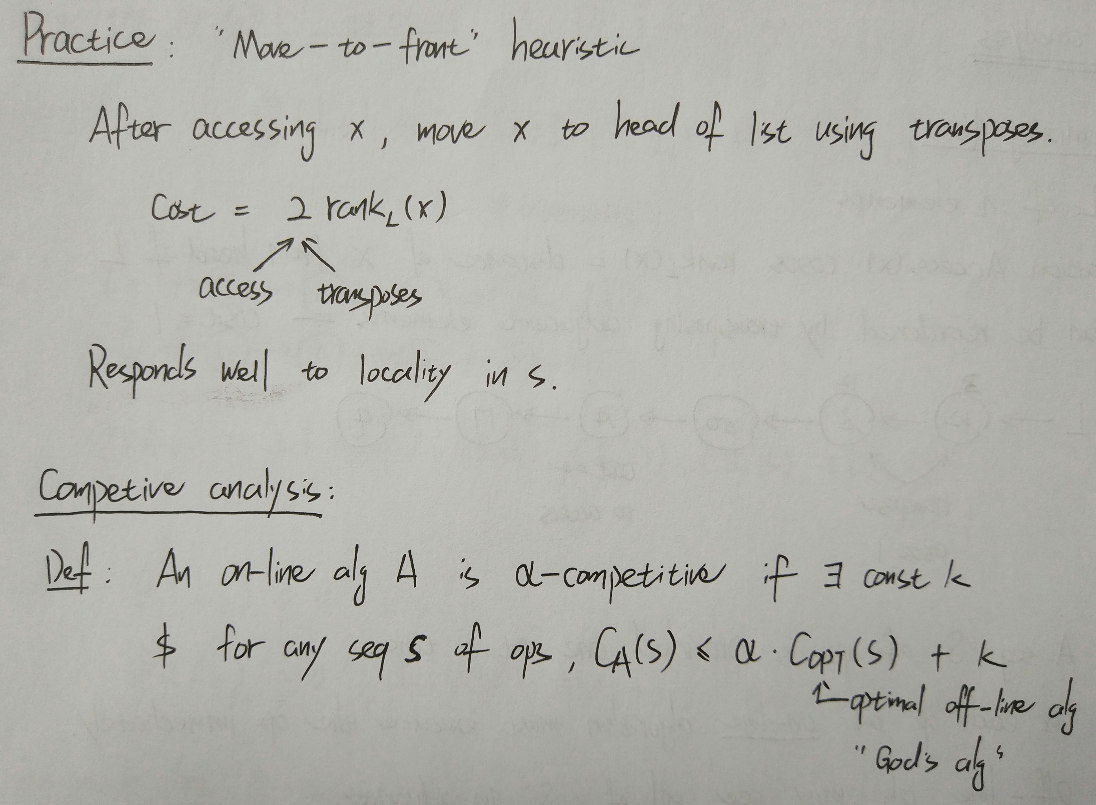 Practice: "Move-to-front" heuristic
After accessing x, move x to head of list using transposes.
Cost = 2 rank_L(x)
access transposes
Responds well to locality in s.
Competive analysis:
Def: An on-line alg A is α-competitive if ∃ const k
$ for any seq s of ops, C_A(s) ≤ α · C_OPT(s) + k
optimal off-line alg
"God's alg"